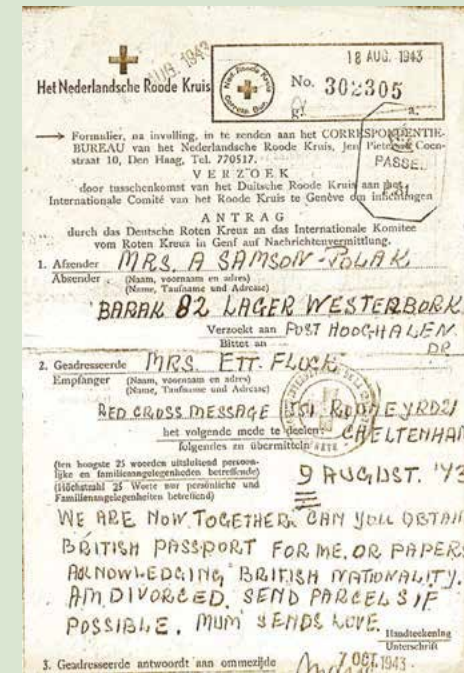 AUG. 1943
18 AUG. 1943
Het Nederlandsche Roode Kruis
No. 302305
→ Formulier, na invulling, in te zenden aan het CORRESPONDENTIE-
BUREAU van het Nederlandsche Roode Kruis, Jan Pieterszn Coen-
straat 10, Den Haag, Tel. 770517.
PASSED
VERZOEK
door tusschenkomst van het Duitsche Roode Kruis aan het
Internationale Comité van het Roode Kruis te Genève om inlichtingen
ANTRAG
durch das Deutsche Roten Kreuz an das Internationale Komitee
vom Roten Kreuz in Genf auf Nachrichtenvermittlung.
1. Afzender MRS. A SAMSON-POLAK
Absender (Naam, voornaam en adres)
(Name, Taufname und Adresse)
BARAK 82 LAGER WESTERBORK
Verzoekt aan POST HOOGHALEN.
Bittet an DR
2. Geadresseerde MRS. ETT. FLUCK
Empfänger (Naam, voornaam en adres)
(Name, Taufname und Adresse)
RED CROSS MESSAGE
het volgende mede te deelen: CHELTENHAM
folgendes zu übermitteln
(ten hoogste 25 woorden uitsluitend persoon-
lijke en familieaangelegenheden betreffende)
(Höchstzahl 25 Worte nur persönliche und
Familienangelegenheiten betreffend)
9 AUGUST. '43
WE ARE NOW TOGETHER CAN YOU OBTAIN
BRITISH PASSPORT FOR ME. OR PAPERS
ACKNOWLEDGING BRITISH NATIONALITY.
AM DIVORCED. SEND PARCELS IF
POSSIBLE. MUM SENDS LOVE.
Handteekening
Unterschrift
3. Geadresseerde antwoordt aan ommezijde
7 OCT. 1943